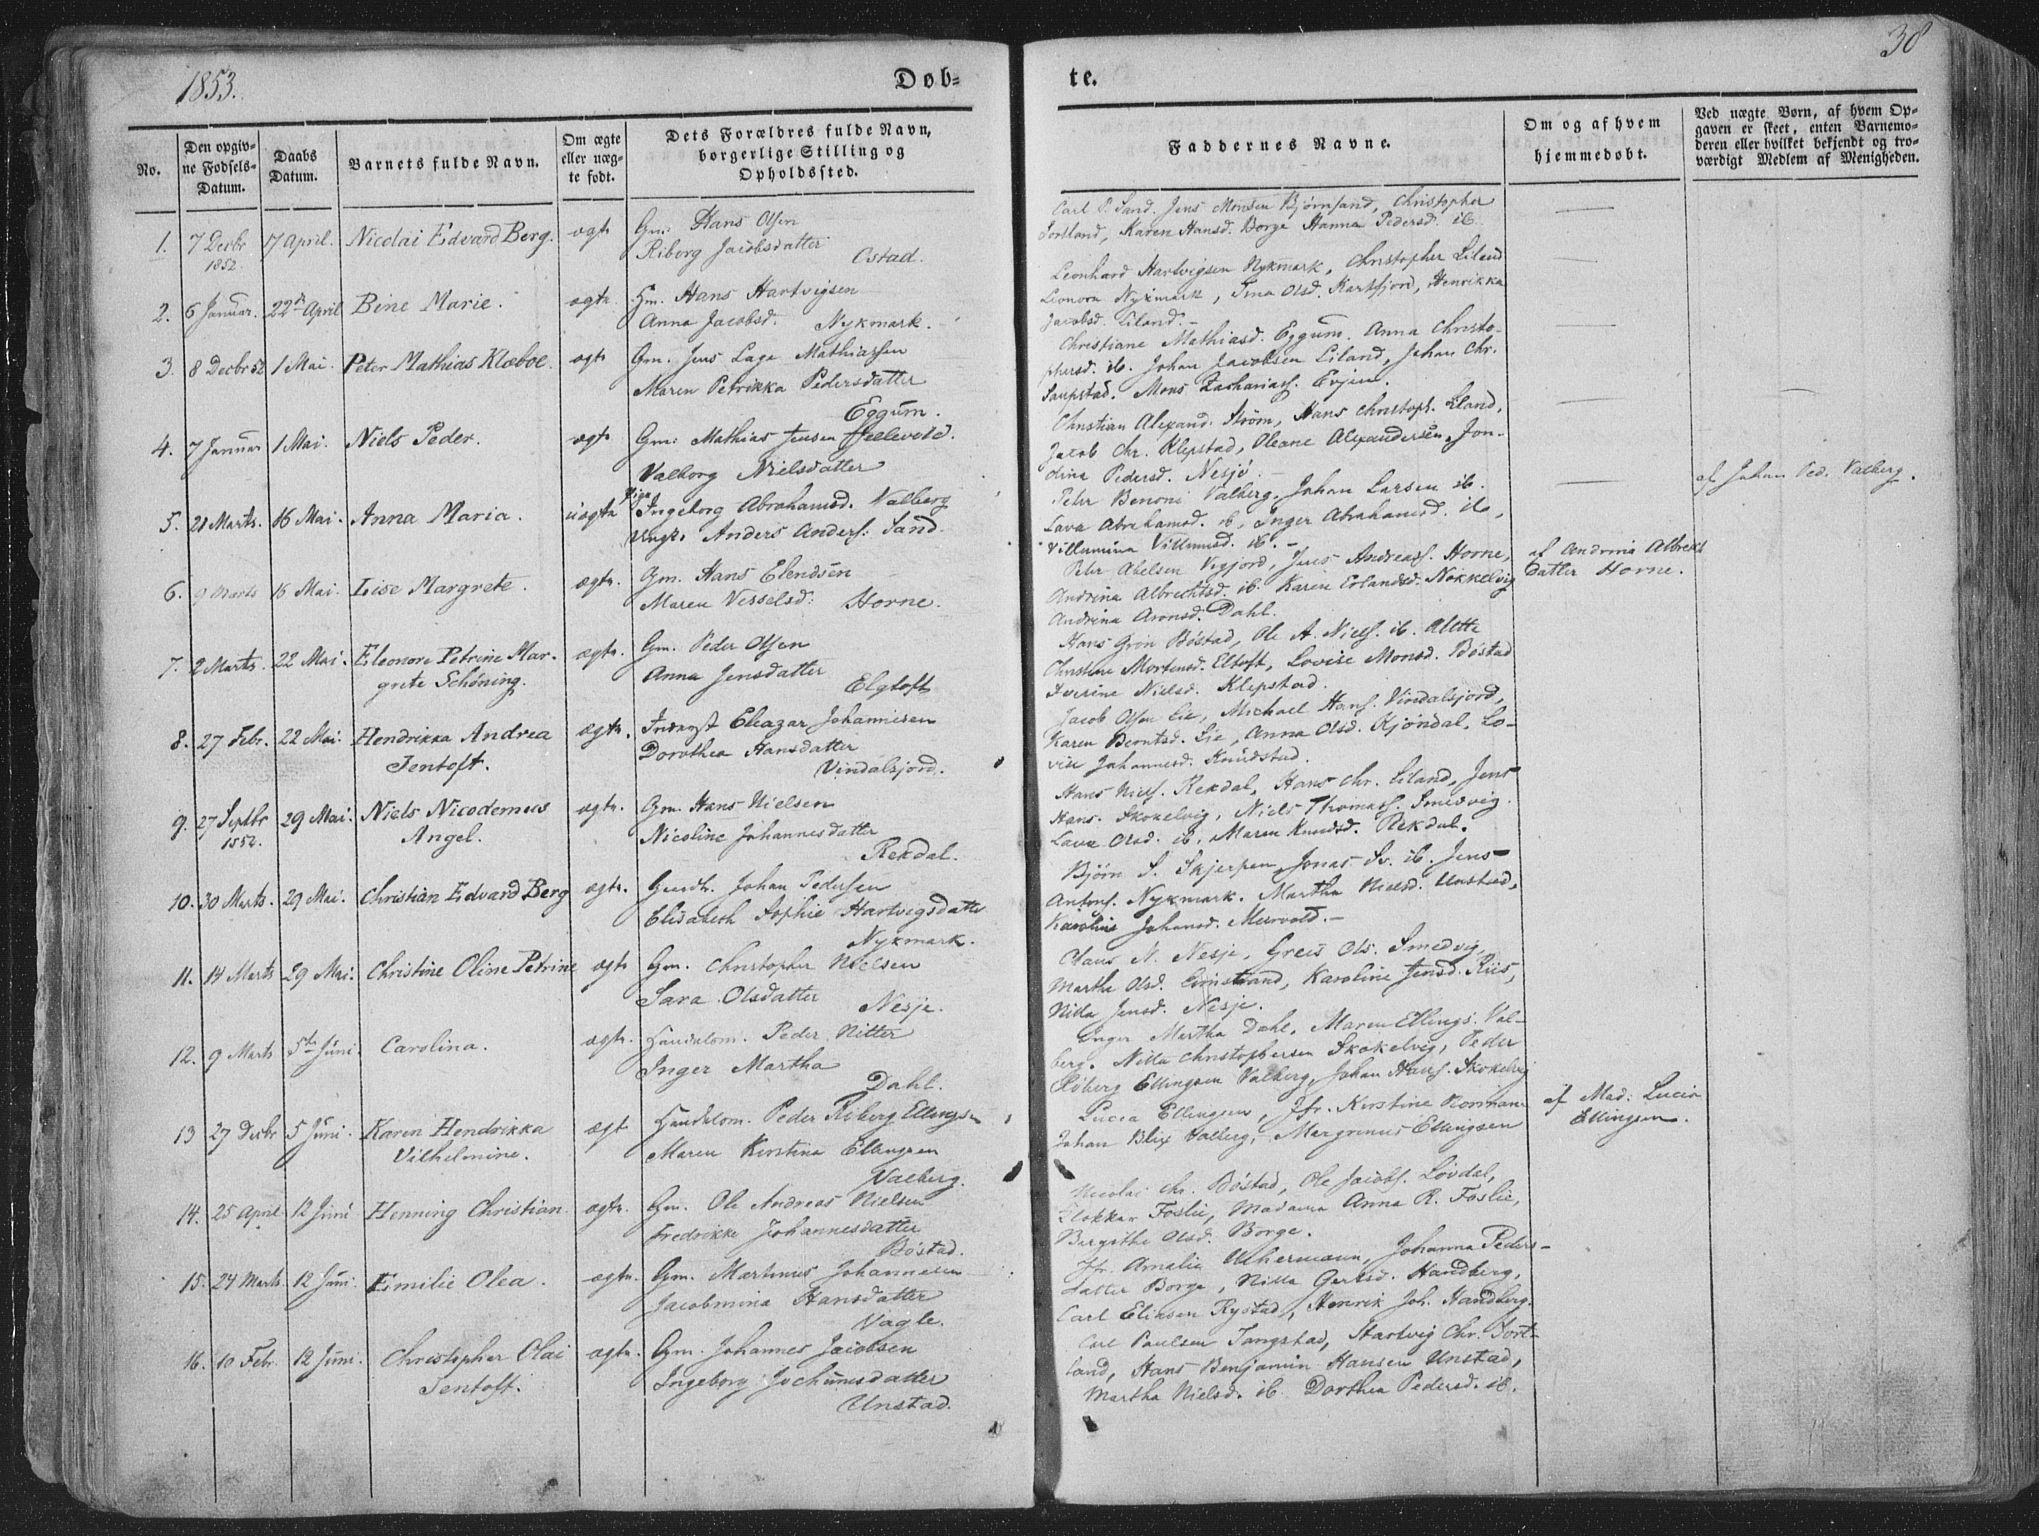 1853.
Døb-
te.
38
No.
Den opgiv-
ne Fødsels-
Datum.
Daabs
Datum.
Barnets fulde Navn.
Om ægte
eller uæg-
te født.
Dets Forældres fulde Navn,
borgerlige Stilling og
Opholdssted.
Faddernes Navne.
Om og af hvem
hjemmedøbt.
Ved uægte Børn, af hvem Op-
gaven er skeet, enten Barnemo-
deren eller hvilket bekjendt og tro-
værdigt Medlem af Menigheden.
1. 7 Decbr 17 April. Nicolai Edvard Berg. ægte Gm: Hans Olsen
1852. Riborg Jacobsdatter
Ostad.
Carl P. Sand. Jens Monsen Bjørnsand, Christopher
Sortland, Karen Hansd. Borge Hanna Pedersd. ib.
2. 6 Januar. 22de April Bine Marie. ægte Hm. Hans Hartvigsen
Anna Jacobsd. Nykmark.
Leonhard Hartvigsen Nykmark, Christopher Liland
Leonora Nykmark, Trina Olsd. Kartfjord, Henrikka
Jacobsd. Liland.
3. 8 Decbr 52 1 Mai. Peter Mathias Klæboe. ægte Gm. Jens Lage Mathiassen
Maren Petrikka Pedersdatter
Eggum.
Christiane Mathiasd. Eggum, Anna Christo-
phersd. ib. Johan Jacobsen Liland, Johan Chr.
Saupstad. Mons Zachariass. Evjen.
4. 7 Januar 1 Mai. Niels Peder. ægte Gm: Mathias Jensen Hellevold.
Valborg Nielsdatter
Christian Alexand. Strøm, Hans Christoph. Liland,
Jacob Chr. Klepstad, Oleane Alexandersen, Jon-
drina Pedersd. Nesje.
5. 21 Marts. 16 Mai. Anna Maria. uægte Pige Ingeborg Abrahamsd. Valberg
Ungk. Anders Anders: Sand.
Petr Benoni Valberg, Johan Larsen ib.
Lava Abrahamsd. ib, Inger Abrahamsd. ib,
Villumina Villumsd. ib.
af Johan Ped. Valberg.
6. 9 Marts 16 Mai. Lise Margrete. ægte. Gm. Hans Elendsen
Maren Vesselsd: Horne.
Petr Abelsen Vigjord, Jens Andreass. Horne,
Andrina Albrechtsd. ib. Karen Erlandsd. Nokkelvig
Andrina Aronsd. Dahl.
af Andrina Albrekt
Datter Horne.
7. 2 Marts. 22 Mai. Eleonore Petrine Mar-
grete Schöning. ægte. Gm. Peder Olsen
Anna Jensdatter
Elgtoft
Hans Grøn Bøstad, Ole A. Niels. ib. Alette
Christine Mortensd. Eltoft, Lovise Monsd. Bøstad
Iverine Nielsd. Klepstad.
8. 27 Febr. 22 Mai. Hendrikka Andrea
Jentoft. ægte. Inderst Eleazar Johannesen
Dorothea Hansdatter
Vindalsjord.
Jacob Olsen Lie, Michael Hans. Vindalsjord,
Karen Berntsd. Lie, Anna Olsd. Kjøndal, Lo-
vise Johannesd. Knudstad.
9. 27 Septbr 29 Mai. Niels Nicodemus
1852. Angel. ægte. Gm. Hans Nielsen
Nicoline Johannesdatter
Rekdal.
Hans Niels. Rekdal, Hans Chr. Liland, Jens
Hans. Skokelvig, Niels Thomass. Smedvig.
Lava Olsd. ib. Maren Knudsd. Rekdal.
10. 30 Marts. 29 Mai. Christian Edvard Berg ægte. Johan Pedersen
Elisabeth Sophie Hartvigsdatter
Nykmark.
Bjørn S. Skjerpen, Jonas Sv. ib. Jens
Antons. Nykmark. Martha Nielsd. Unstad,
Karoline Johansd. Mervold.
11. 14 Marts 29 Mai. Christine Oline Petrine ægte Gm. Christopher Nielsen
Sara Olsdatter Nesje.
Claus N. Nesje, Greis Ols. Smedvig,
Martha Olsd. Limstrand, Karoline Jensd. Riis,
Nilla Jensd. Nesje.
12. 9 Marts 5te Juni. Carolina. ægte. Handelsm. Peder Nitter
Inger Martha
Dahl.
Inger Martha Dahl, Maren Ellings. Val-
berg. Nilla Christophersen Skokelvig, Peder
Riberg Ellingsen Valberg, Johan Hans. Skokelvig
13 27 Decbr 5 Juni. Karen Hendrikka
Vilhelmine. ægt Handelsm. Peder Riberg Ellingsen
Maren Kirstina Ellingsen
Valberg.
Lucia Ellingsen, Jfr. Kirstine Normann
Johan Blix Valberg, Margrenus Ellingsen
af Mad: Lucia
Ellingsen.
14. 25 April 12 Juni Henning Christian ægte. Gm. Ole Andreas Nielsen
Fredrikke Johannesdatter
Bøstad.
Nicolai Chr. Bøstad, Ole Jacobs. Løvdal,
Klokker Foslie, Madame Anna R. Foslie,
Bergithe Olsd. Borge.
15. 24 Marts 12 Juni. Emilie Olea. ægte. Gm. Martinus Johannesen
Jacobmina Hansdatter
Vagle.
Jfr. Amalie Uchermann, Johanna Peders-
datter Borge, Nilla Gertsd. Handberg,
Carl Eliasen Rystad, Henrik Joh. Handberg.
16. 10 Febr. 12 Juni. Christopher Olai
Jentoft. ægte. Gm. Johannes Jacobsen
Ingeborg Jochumsdatter
Unstad.
Carl Paulsen Tangstad, Hartvig Chr. Sort-
land, Hans Benjamin Hansen Unstad,
Martha Nielsd. ib Dorthea Pedersd. ib.